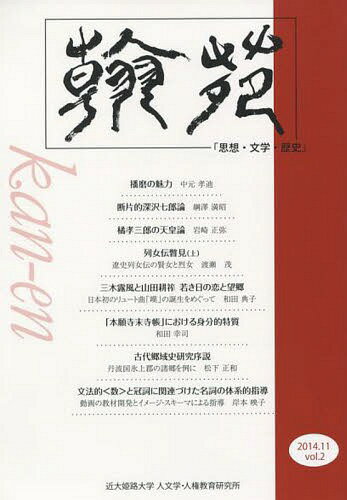 翰苑
「思想・文学・歴史」
kan-en
播磨の魅力 中元 孝迪
断片的深沢七郎論 綱澤 満昭
橘孝三郎の天皇論 岩崎 正弥
列女伝瞥見(上)
遼史列女伝の賢女と烈女 渡瀬 茂
三木露風と山田耕筰 若き日の恋と望郷
日本初のリュート曲「嘆」の誕生をめぐって 和田 典子
「本願寺末寺帳」における身分的特質
和田 幸司
古代郷域史研究序説
丹波国氷上郡の諸郷を例に 松下 正和
文法的<数>と冠詞に関連づけた名詞の体系的指導
動画の教材開発とイメージ・スキーマによる指導 岸本 映子
2014.11
vol.2
近大姫路大学 人文学・人権教育研究所